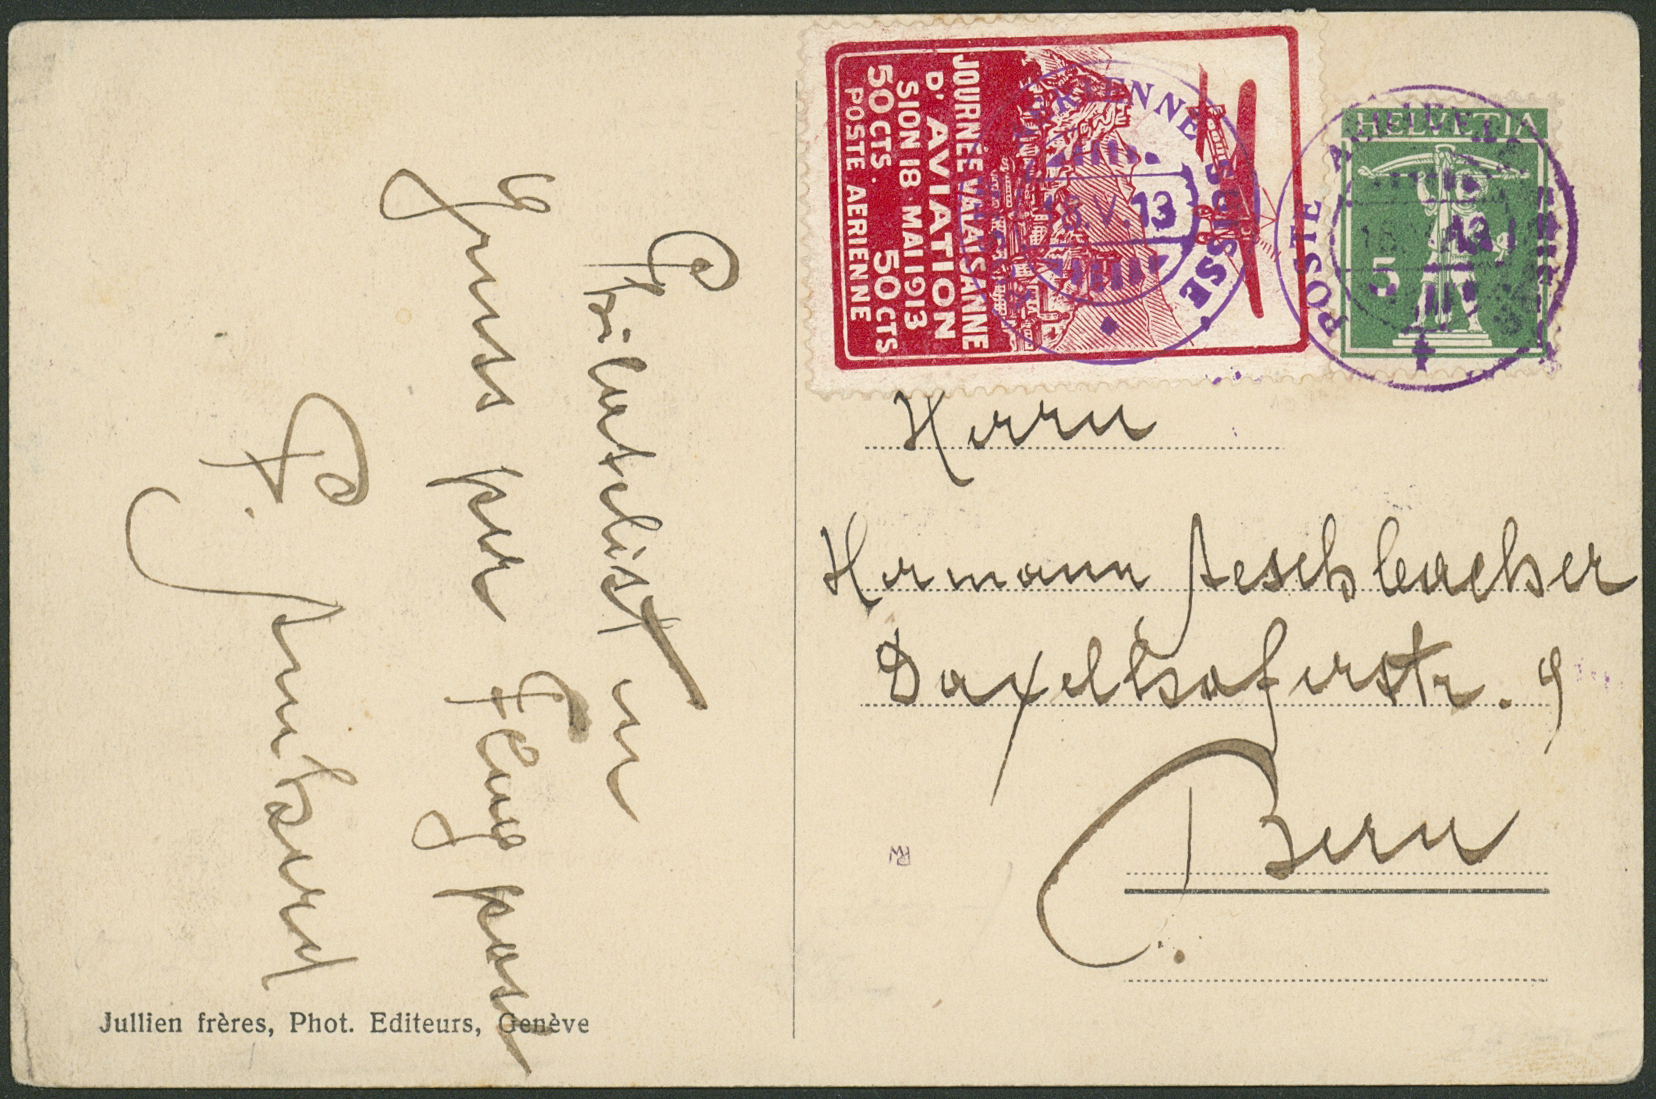 Philatelist in
Gruss per Flugpost
P.
Jullien frères, Phot. Editeurs, Genève
JOURNÉE VALAISANNE
D'AVIATION
SION 18 MAI 1913
50 CTS. 50 CTS
POSTE AERIENNE
POSTE AERIENNE SUISSE
18.V.13
HELVETIA
5
POSTE AERIENNE SUISSE
18.V.13
Herrn
Hermann Aeschbacher
Daxelhoferstr. 9
Bern